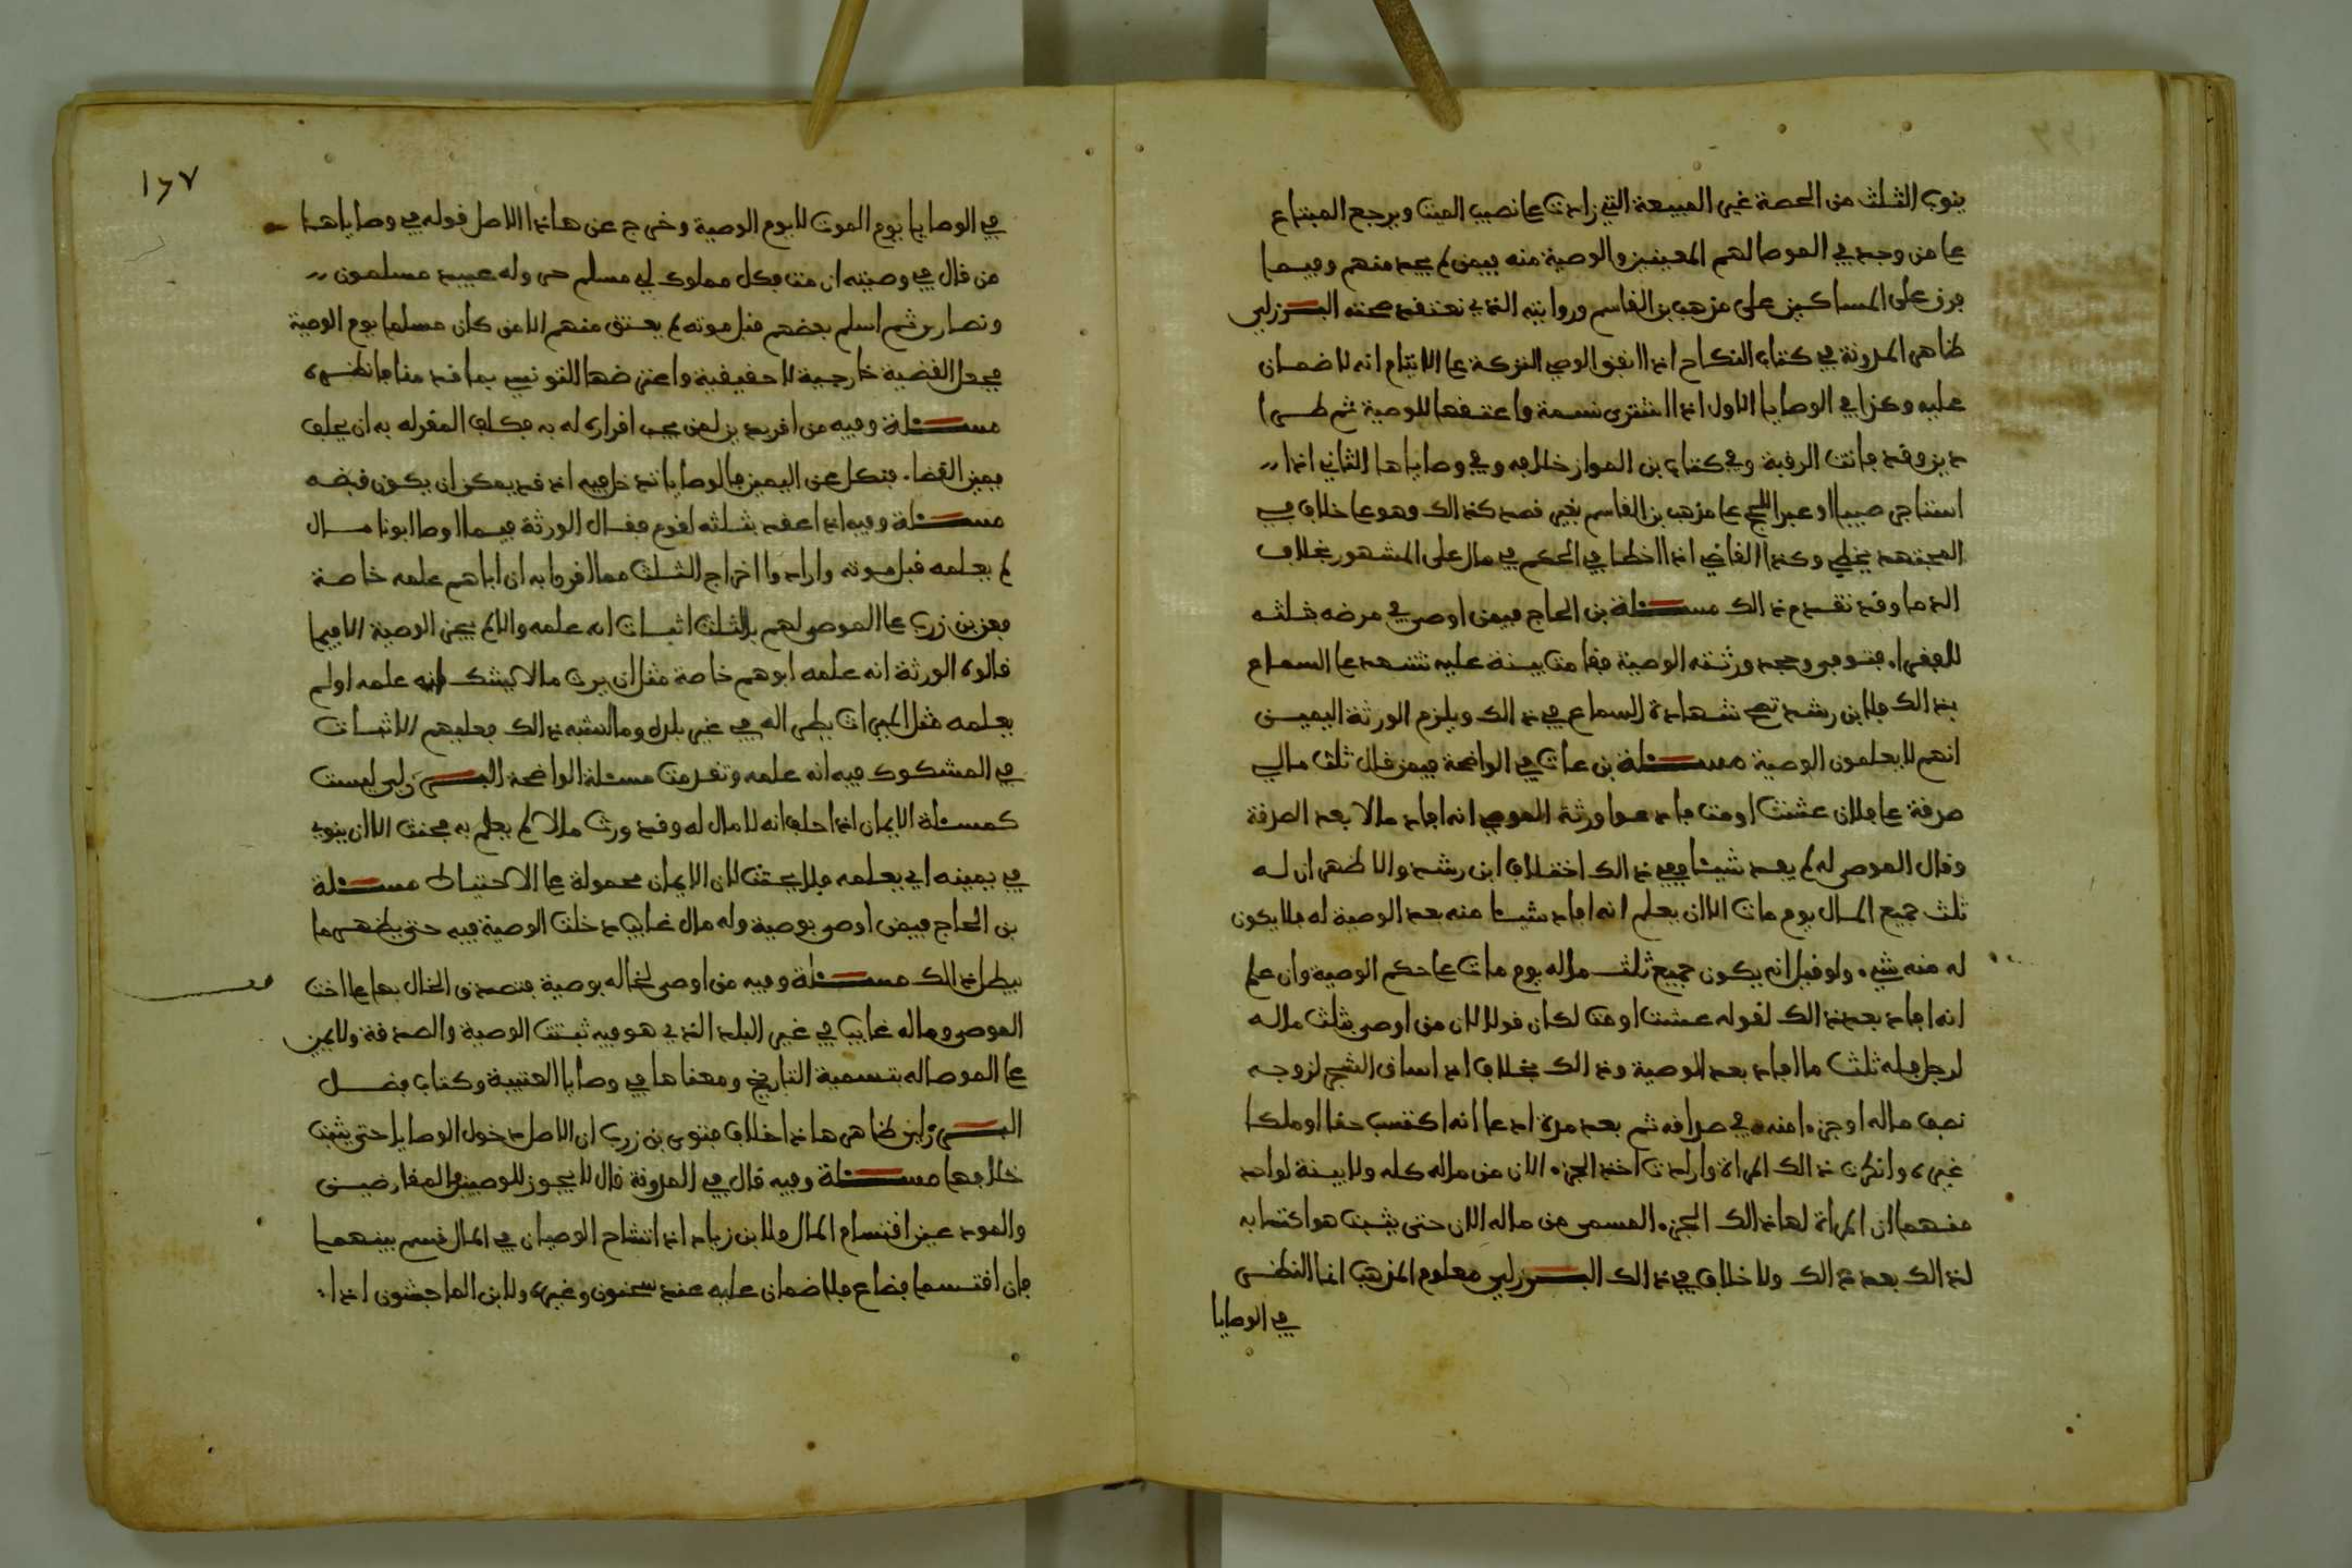 ينوب الثلث من الحصة غير المبيعة التي زادت على نصيب الميت ويرجع المبتاع
على من وجد في الموصا لهم المعينين والوصية منه فيمن لم يجد منهم وفيما
فرق على المساكين على مذهب بن القاسم وروايته الذي نعتقد صحته البرزلي
ظاهر المدونة في كتاب النكاح اذا انفق الوصي التركة على الايتام انه لا ضمان
عليه وكذا في الوصايا الاول اذا اشترى نسمة واعتقها للوصية ثم طرا
دين وقد ماتت الرقبة وفي كتاب بن المواز خلافه وفي وصاياها الثاني اذا
استاجر صبيا او عبدا للحج على مذهب بن القاسم بغير قصد كذالك وهو على خلاف في
المجتهد يخطي وكذا القاضي اذا اخطا في الحكم في مال على المشهور بخلاف
الدما وقد تقدم ذالك مسئلة بن الحاج فيمن اوصى في مرضه بثلثه
للفقراء فتوفي وجحد ورثته الوصية فقامت بينة عليه تشهد على السماع
بذالك فلابن رشد تصح شهادة السماع في ذالك ويلزم الورثة اليمين
انهم لا يعلمون الوصية مسئلة بن عات في الواضحة فيمن قال ثلث مالي
صدقة على فلان عشت او مت فادعوا ورثة الموصي انه افاد مالا بعد الصدقة
وقال الموصى له لم يفد شيئا ففي ذالك اختلاف ابن رشد والاظهر ان له
ثلث جميع المال يوم مات الا ان يعلم انه افاد شيئا منه بعد الوصية له فلا يكون
له منه شيء ولو قيل انه يكون جميع ثلث ماله يوم مات على حكم الوصية وان علم
انه افاد بعد ذالك لقوله عشت او مت لكان قولا لان من اوصى بثلث ماله
لرجل فله ثلث ما افاد بعد الوصية وذالك بخلاف اذا ساق الشخص لزوجه
نصف ماله او جزءا منه في صداقه ثم بعد مدة ادعا انه اكتسب حقا او ملكا
غيره وانكرت ذالك المراة وارادت اخذ الجزء الان من ماله كله ولا بينة لواحد
منهما ان المراة لها ذالك الجزء المسمى من ماله الان حتى يثبت هو اكتسابه
لذالك بعد ذالك ولا خلاف في ذالك البرزلي معلوم المذهب انما النظر
في الوصايا
١٦٧
في الوصايا يوم الموت لا يوم الوصية وخرج عن هاذا الاصل قوله في وصاياها
من قال في وصيته ان مت فكل مملوك لي مسلم حر وله عبيد مسلمون
ونصارى ثم اسلم بعضهم قبل موته لم يعتق منهم الا من كان مسلما يوم الوصية
فجعل القضية خارجية لا حقيقية واعترضها التونسي بما قدمنا فانظره
مسئلة وفيه من اقر بدين لمن يجب اقراره له به فكلف المقر له به ان يحلف
يمين القضاء فنكل عن اليمين فالوصايا تدخل فيه اذ قد يمكن ان يكون قبضه
مسئلة وفيه اذا عهد بثلثه لقوم فقال الورثة فيما اوصا ابونا مال
لم يعلمه قبل موته وارادوا اخراج الثلث مما اقروا به ان اباهم علمه خاصة
فعن بن زرب على الموصى لهم بالثلث اثبات انه علمه والا لم يجز الوصية الا فيما
قالوه الورثة انه علمه ابوهم خاصة مثل ان يرث مالا يشك انه علمه او لم
يعلمه مثل الميراث يطرا له في غير بلده وما اشبه ذالك فعليهم الاثبات
في المشكوك فيه انه علمه وتقدمت مسئلة الواضحة البرزلي ليست
كمسئلة الايمان اذا حلف انه لا مال له وقد ورث مالا لم يعلم به فيحنث الا ان ينوي
في يمينه اي يعلمه فلا يحنث لان الايمان محمولة على الاحتياط مسئلة
بن الحاج فيمن اوصى بوصية وله مال غايب دخلت الوصية فيه حتى يظهر ما
يبطل ذالك مسئلة وفيه من اوصى لخاله بوصية فتصدق الخال بها على اخت
الموصي وماله غايب في غير البلد الذي هو فيه ثبتت الوصية والصدقة ولا يمين
على الموصا له بتسمية التاريخ ومعناها في وصايا العتبية وكتاب فضل
البرزلي ظاهر هاذا خلاف فتوى بن زرب ان الاصل دخول الوصايا حتى يثبت
خلافها مسئلة وفيه قال في المدونة قال لا يجوز للوصيين والمقارضين
والمودعين اقتسام المال ولابن زياد اذا تشاح الوصيان في المال قسم بينهما
فان اقتسما فضاع فلا ضمان عليه عند سحنون وغيره ولابن الماجشون اذا